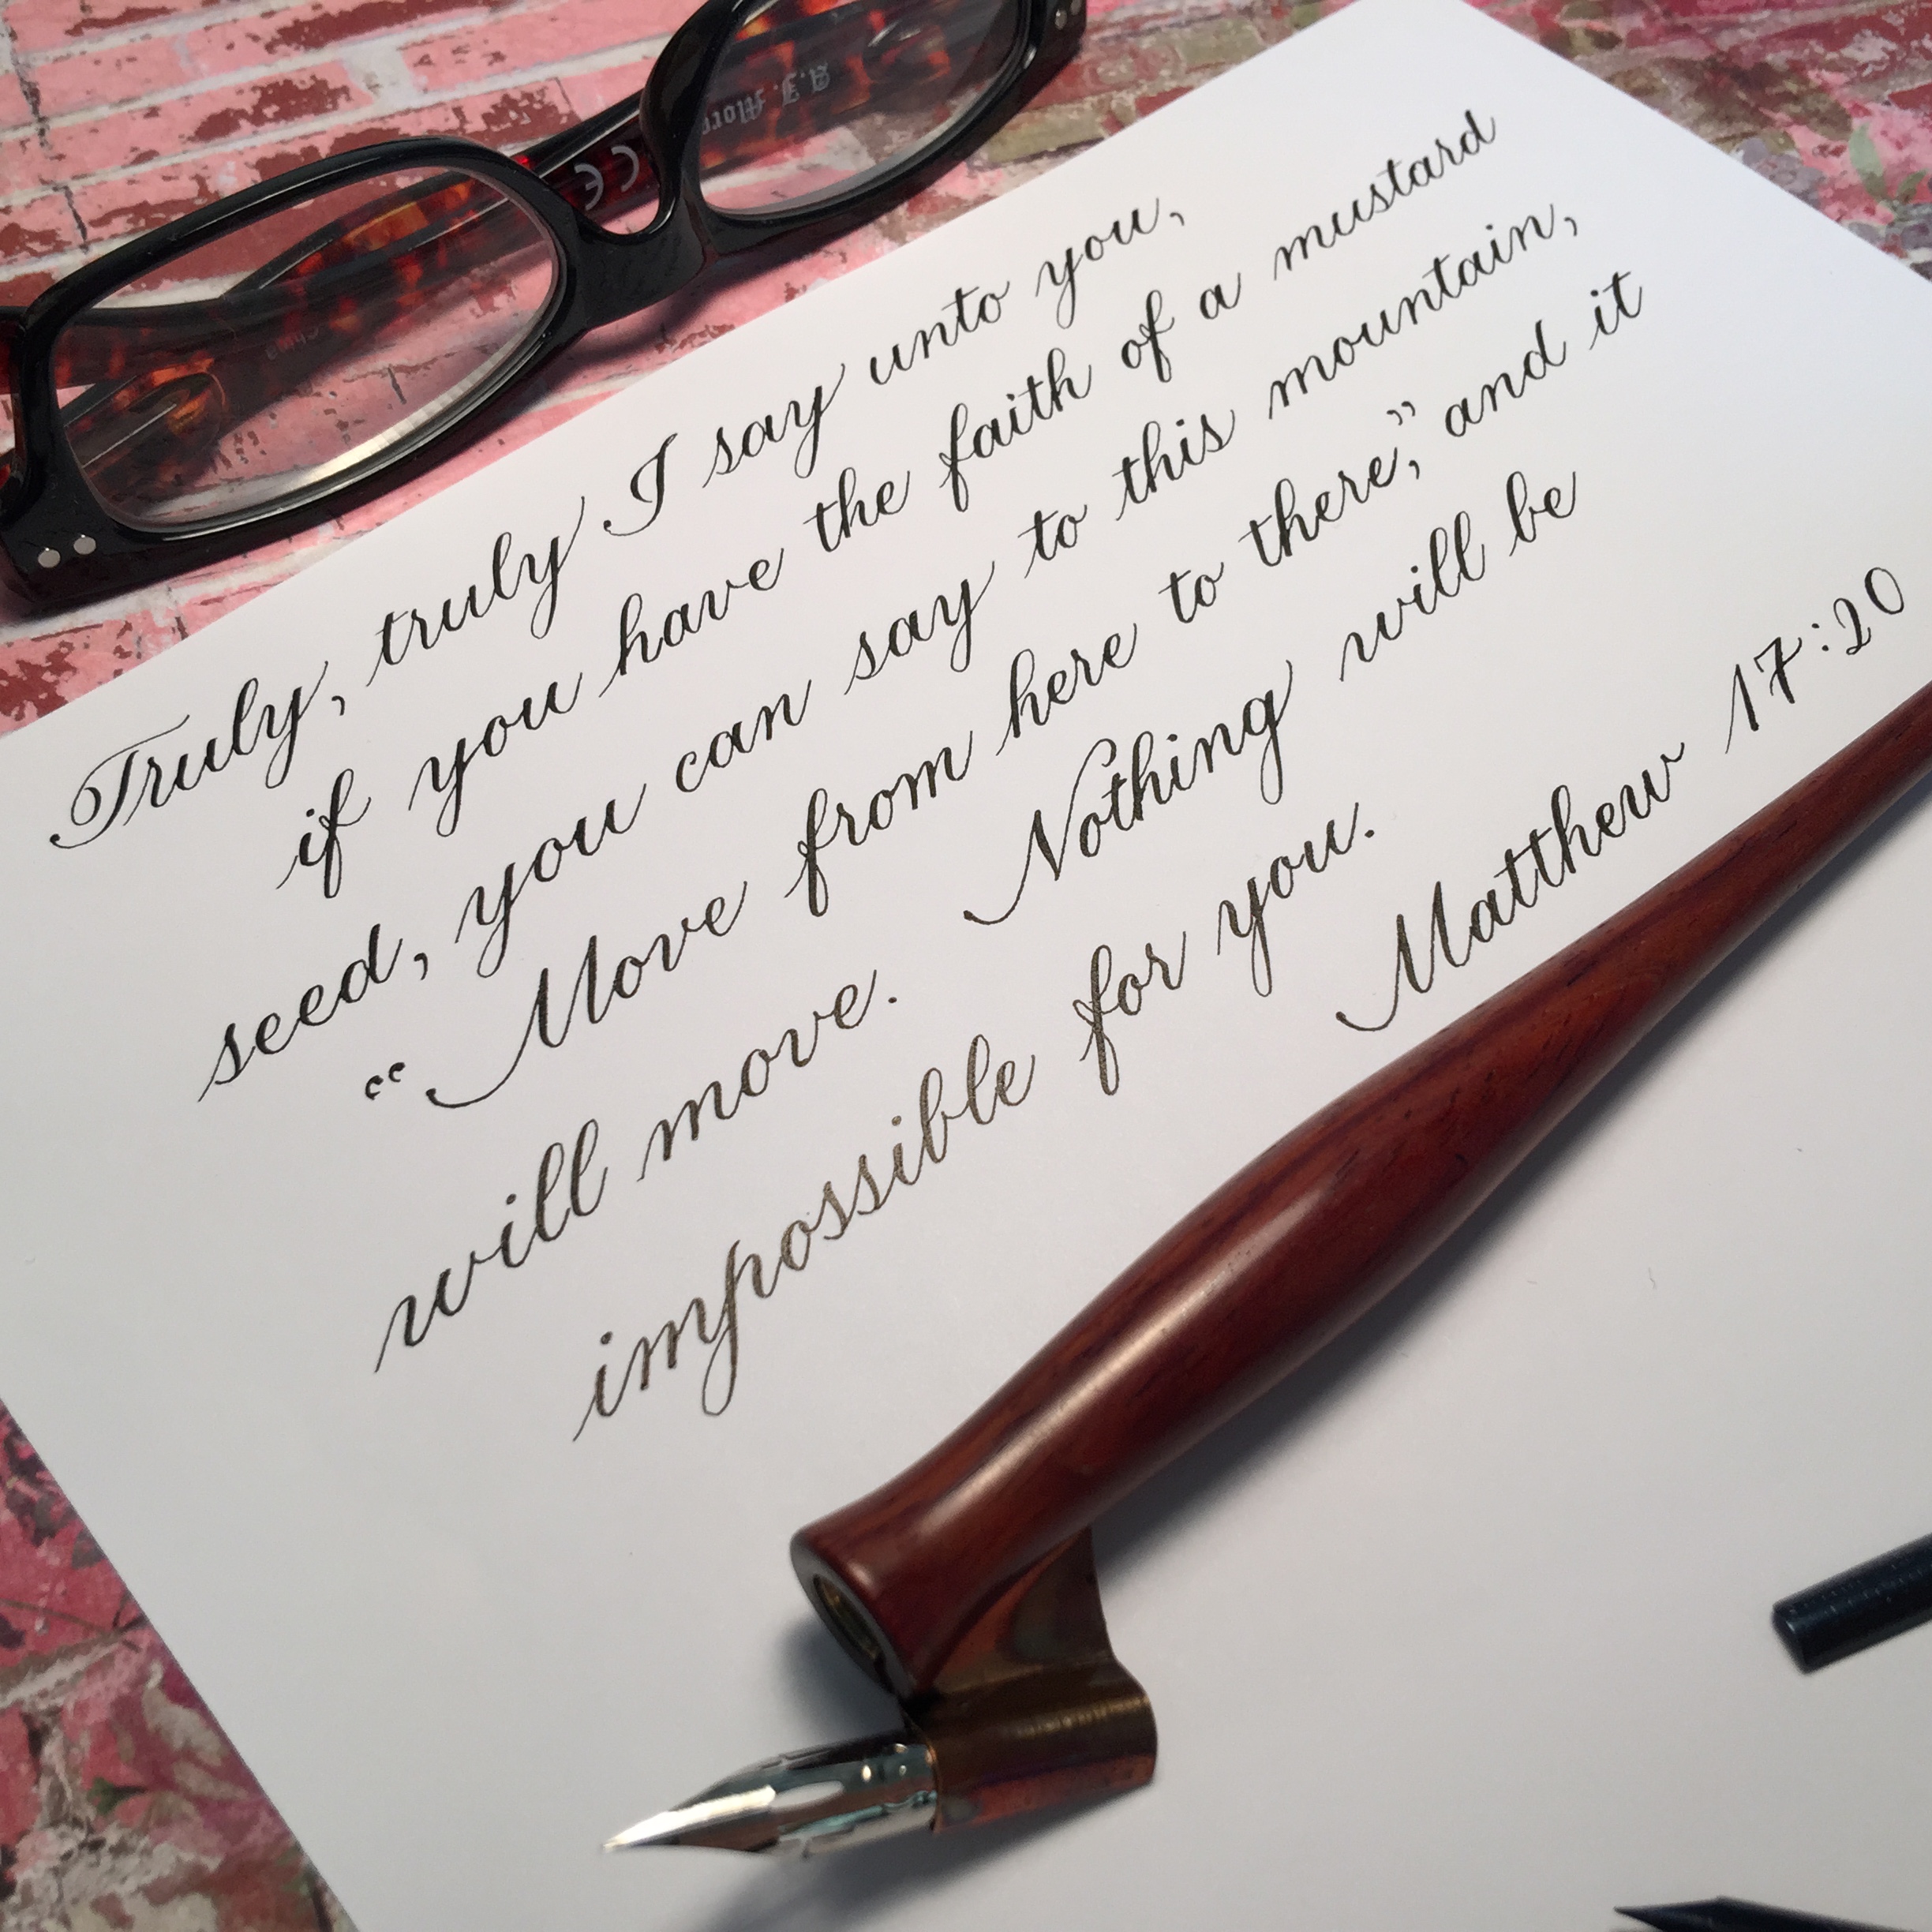 A.J. Mor
CE
China
Truly, truly I say unto you,
if you have the faith of a mustard
seed, you can say to this mountain,
“Move from here to there,” and it
will move. Nothing will be
impossible for you.
Matthew 17:20